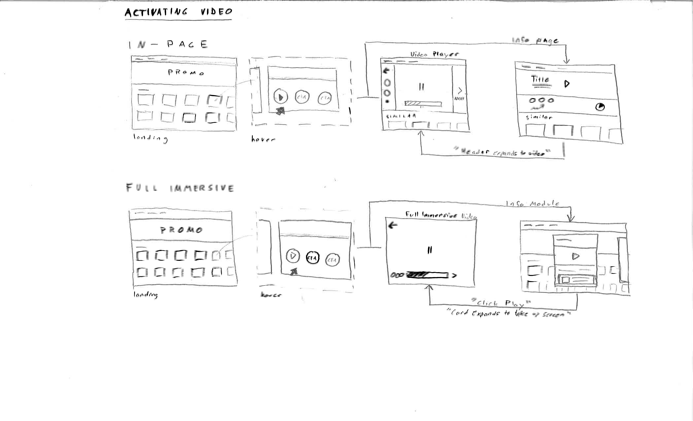 ACTIVATING VIDEO
IN-PAGE
PROMO
landing
hover
Video Player
SIMILAR
Info page
Title
Similar
"Header expands to video"
FULL IMMERSIVE
PROMO
landing
hover
Full Immersive Video
Info Module
"Click Play"
"Card Expands to take up screen"